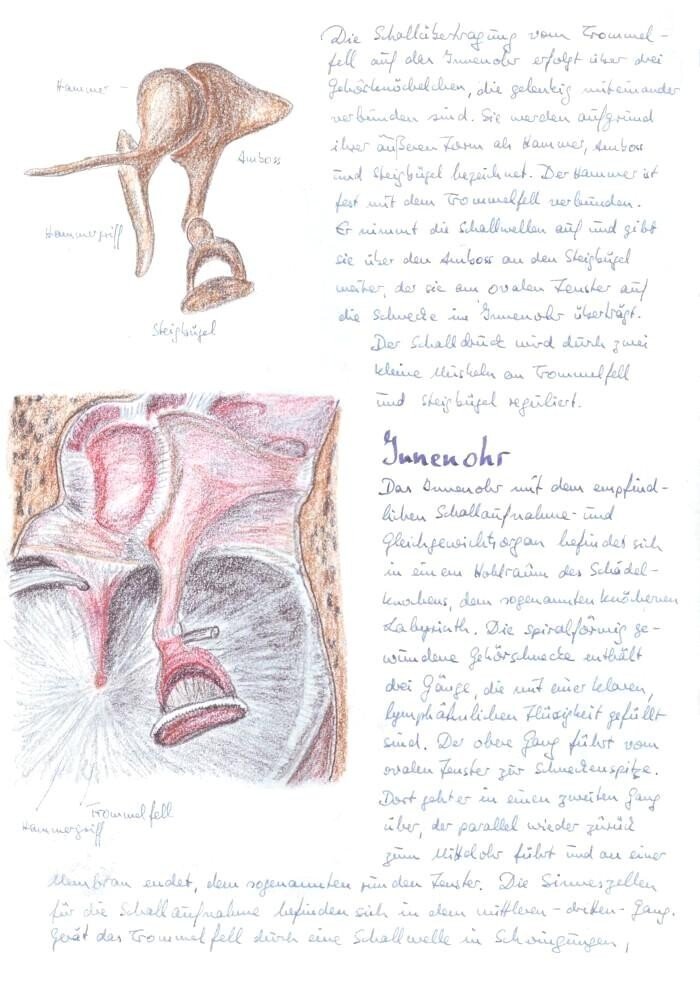 Die Schallübertragung vom Trommel-
fell auf das Innenohr erfolgt über drei
Gehörknöchelchen, die gelenkig miteinander
verbunden sind. Sie werden aufgrund
ihrer äußeren Form als Hammer, Amboss
und Steigbügel bezeichnet. Der Hammer ist
fest mit dem Trommelfell verbunden.
Er nimmt die Schallwellen auf und gibt
sie über den Amboss an den Steigbügel
weiter, der sie am ovalen Fenster auf
die Schnecke im Innenohr überträgt.
Der Schalldruck wird durch zwei
kleine Muskeln an Trommelfell
und Steigbügel reguliert.
Hammer
Amboss
Hammergriff
Steigbügel
Innenohr
Das Innenohr mit dem empfind-
lichen Schallaufnahme- und
Gleichgewichtsorgan befindet sich
in einem Hohlraum des Schädel-
knochens, dem sogenannten knöchernen
Labyrinth. Die spiralförmig ge-
wundene Gehörschnecke enthält
drei Gänge, die mit einer klaren,
lymphähnlichen Flüssigkeit gefüllt
sind. Der obere Gang führt vom
ovalen Fenster zur Schneckenspitze.
Dort geht er in einen zweiten Gang
über, der parallel wieder zurück
zum Mittelohr führt und an einer
Membran endet, dem sogenannten runden Fenster. Die Sinneszellen
für die Schallaufnahme befinden sich in dem mittleren - dritten - Gang.
Gerät das Trommelfell durch eine Schallwelle in Schwingungen,
Trommelfell
Hammergriff